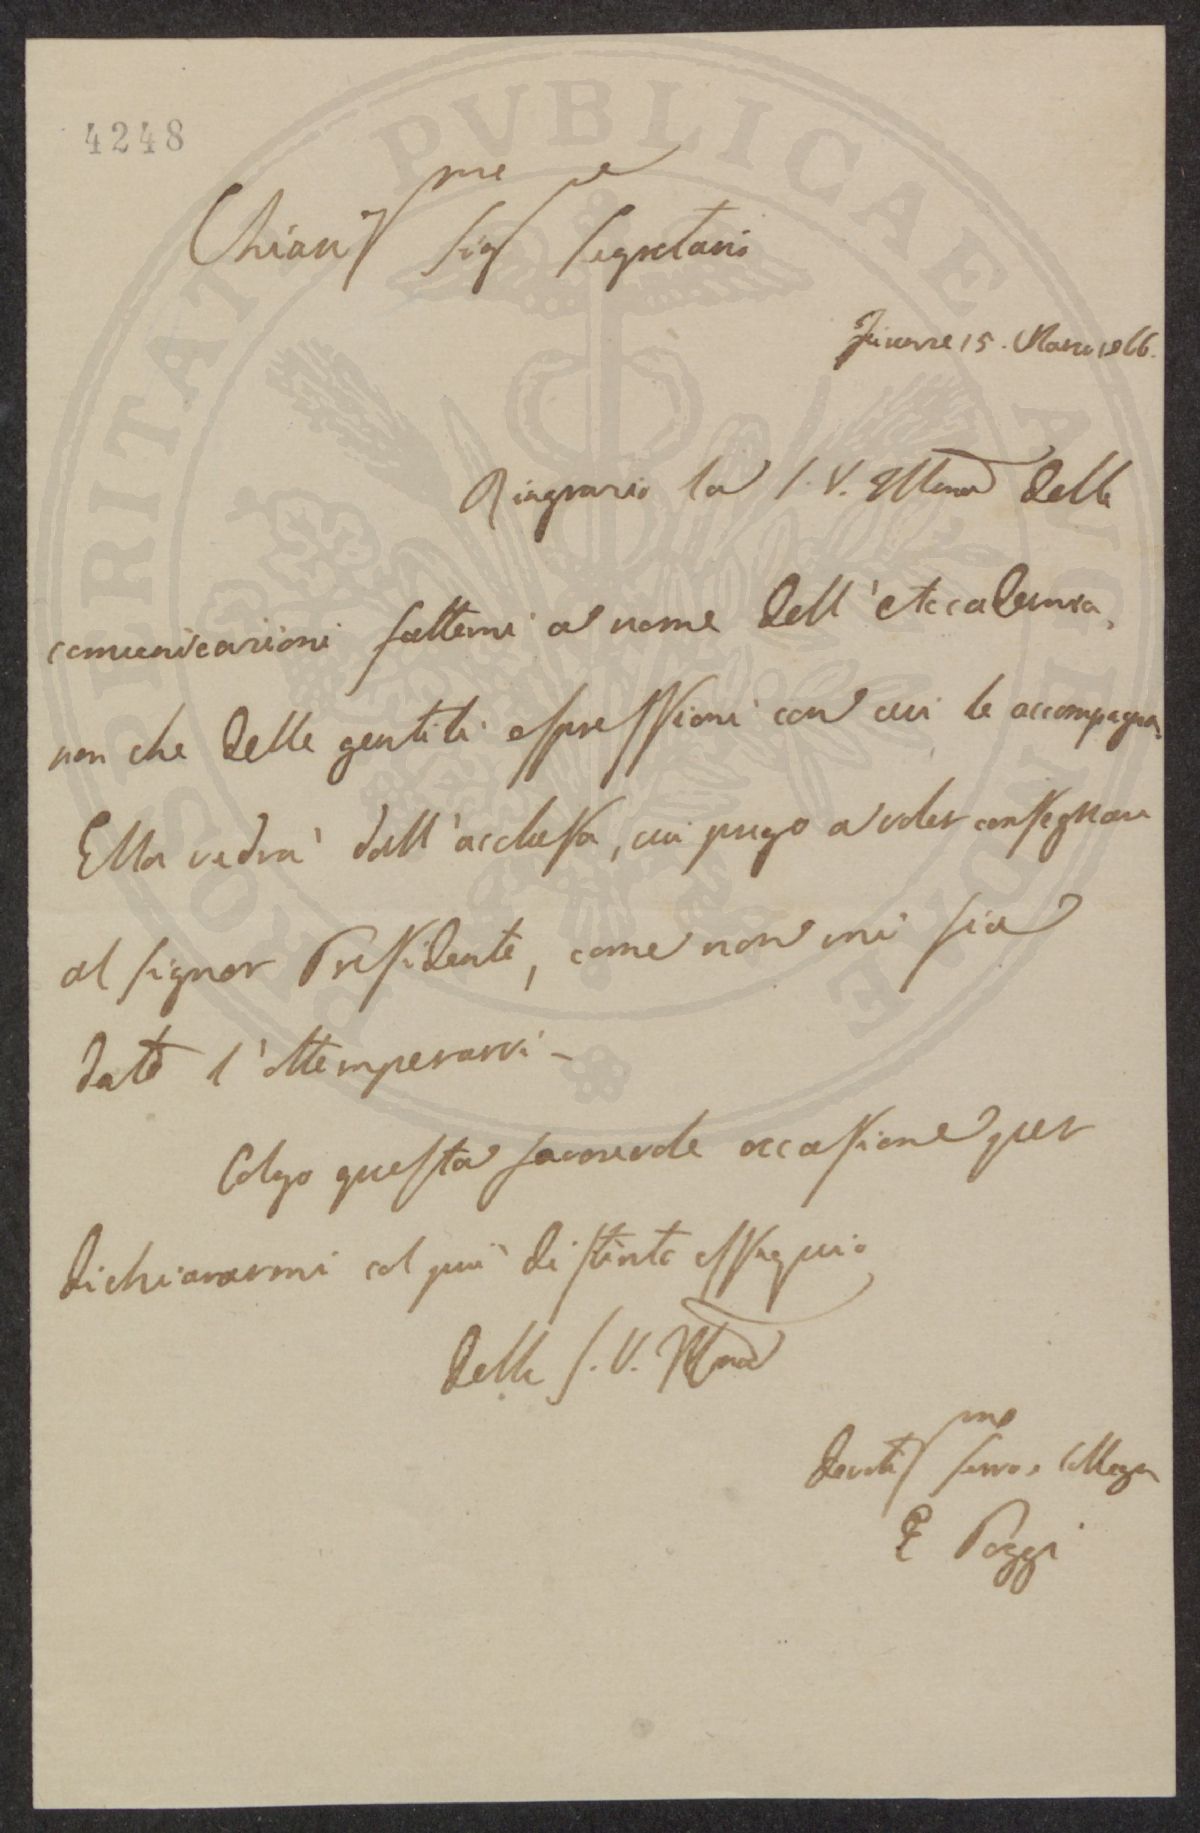 4248
Chiariss.me Sig.re Segretario
Firenze 15. Marzo 1866.
Ringrazio la S. V. Illma delle
comunicazioni fattemi a nome dell'Accademia,
non che delle gentili espressioni con cui le accompagna.
Ella vedrà dall'acclusa, cui prego a voler consegnare
al signor Presidente, come non mi sia
dato l'ottemperarvi –
Colgo questa favorevole occasione per
dichiararmi col più distinto ossequio
Della S. V. Illma
Devotiss.mo servo e Collega
E Poggi
PROSPERITATI PVBLICAE AVGENDAE